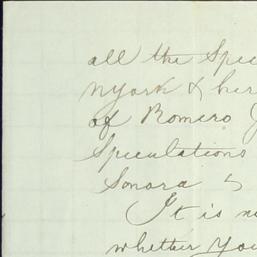 all the Spec
NYork & her
of Romero
Speculations
Sonora &
It is n
whether you